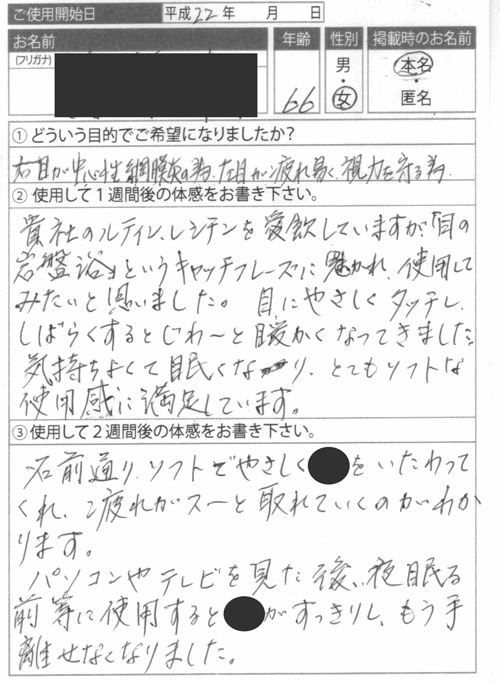 ご使用開始日 平成22年 月 日
お名前 年齢 性別 掲載時のお名前
(フリガナ) 男 本名
・ ・
66 女 匿名
① どういう目的でご希望になりましたか?
右目が中心性網膜炎の為、左目が疲れ易く、視力を守る為
② 使用して1週間後の体感をお書き下さい。
貴社のルテイン、レシチンを愛飲していますが「目の
岩盤浴」というキャッチフレーズに魅かれ、使用して
みたいと思いました。目にやさしくタッチし、
しばらくするとじわ〜と暖かくなってきました。
気持ちよくて眠くなり、とてもソフトな
使用感に満足しています。
③ 使用して2週間後の体感をお書き下さい。
名前通り、ソフトでやさしく をいたわって
くれ、疲れがスーと取れていくのがわか
ります。
パソコンやテレビを見た後、夜眠る
前等に使用すると がすっきりし、もう手
離せなくなりました。